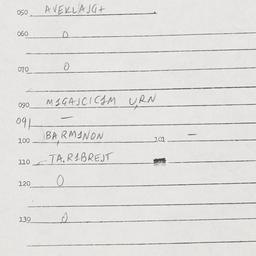 050 AVEKLAJG+
060 0
070 0
090 M1GAJCIC1M U,RN
091 —
100 BA,RM1NON 101 —
110 TA.R1BREJT
120 0
130 0